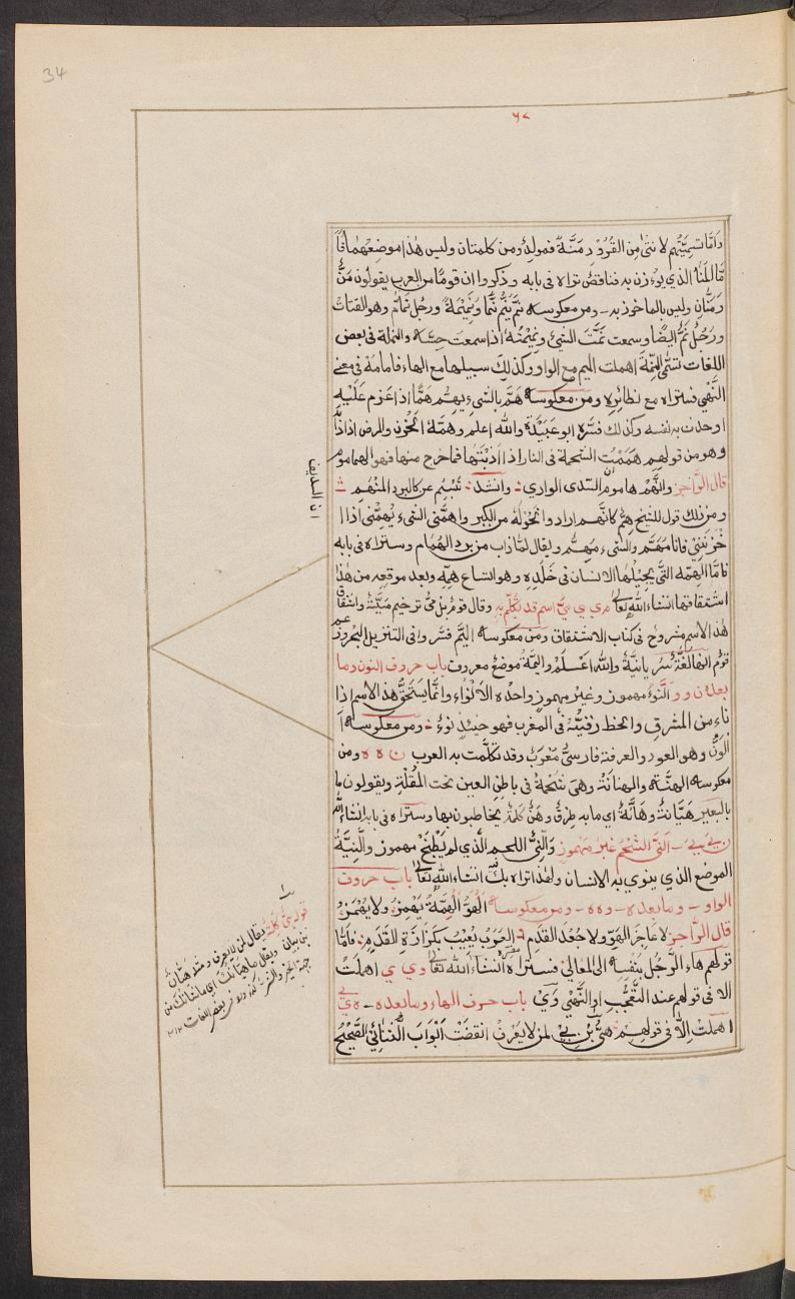 34
٦٧
وَامَّا تسمِيَتُهم لانثىٰ مِن القُرُوْدِ مَنَّةً فمولدة ومن كلمتان وليس هٰذا موضعهما فا
مّا المَنَا الذي يُوْزن به فناقص تراه فى بابه وذكروا ان قومًا من العرب يقولُون مَنٌّ
ومَنَّانِ وليس بالماخوذ به ـ ومن معكوسه نَمَّ يَنُمُّ نَمًّا ونَمِيْمَةً ورجُل نَمّامٌ وهو القتاتُ
ورَجُلٌ نَمٌّ ايضًا وسمعت نَمَّتَ الشئ ونَمِيْمَتُه اذا سمعتَ حِسَّه والنملة فى بعض
اللغات تسمّٰى النِّمَّةَ اهملت الميم مع الواو وكذٰلِكَ سبيلها مع الهاء فاما مَهْ فى معنے
النَّهْي فستراه مع نظائرِهٖ ومن معكوسه هَمَّ بالشيء يهُمُّ هَمًّا اذا عَزم عَلَيْهِ
او حدث به نفسه وكذٰلك فسّره ابو عُبَيْدَة والله اعلم وهمَّهُ الحُزن والمرض اذا اذا
وهو من قولهم هَمَمْتُ الشحمة فى النار اذا اَذَبْتَها فما خرج منها فهو الهاموم
قال الرّاجز وانْهَمَّ هاموم السّدى الوارى ؞ وانشد ؞ تُبْسِم عن كالبردِ المنْهَمِّ ؞
ومن ذلك قول للشيخ هِمٌّ كانّهم ارادوا نحُوْلَهٗ من الكِبَر واهمَّنى الشيء يُهِمُّنى اذا ا
حْزَنَنِى فانا مُهَمٌّ والشى ءمُهِمٌّ ويقال لما ذاب من برد الهُمَام وستراه فى بابه
فامّا الهمّه التى يجيلُها الانسان فى خَلَدِهٖ وهو اتساع همّه وبعد موقعِه من هٰذا
اشتقاقها انشاء اللّٰه تعالٰى م ي ي مَيٌّ اسم قد تُكُلِّم به وقال قومٌ بل مَىٌّ ترخيم مَيَّةُ واشتقاق
هٰذا الاسم مشروحٌ فى كتاب الاشتقاق ومن معكوسه اليَمُّ فسّروا فى التنزيل البحروزعم
قوم انها لغة سريانيَّةٌ والله اعْلَمُ واليمَّةُ موضعٌ معروف باب حروف النون وما
بعده ن و و النَّوْءُ مهموز وغير مهموزٍ واحدُه الانْوَاء وانّما يستحقُّ هٰذا الاسم اذا
ناءَ من المشرق وانحط رقيبُهٗ فى المغرب فهو حينئذٍ نَوْءٌ ؞ ومن معكوسه ا
لوَنُّ وهو العود والعرفته فارسىٌّ مُعَرَبٌ وقد تكلَّمت به العرب ن ه ه ومن
معكوسه الهنَّة والهنانَةُ وهى شحْمَةٌ فى باطِنِ العين تحت المُقْلَةِ ويقولون ما
بالبعيرِ هَنَّانَةٌ وهَانَّةٌ اى ما به طِرْقٌ وهَنٌ كلمةٌ يخاطبون بها وستراه فى بابه انشاء الله
ن ي ي ـ النَّىُّ الشَحْمُ غير مهموزٍ وَالنِّىُّ اللحم الَّذي لم يُطبَخْ مهموز والنِّيَّةُ
الموضع الذى ينوى به الانسان ولهٰذا تراه بكٌ انشاء اللّٰه تعالٰى باب حروف
الواو ـ وما بعده ـ وه ه ـ ومن معكوسه الهَوُّ الهِمَّةُ يُهمَزُ ولا يُهْمَزُ
قال الرّاجز لا عاجز الهوّ ولا جَعْد القَدَمِ ؞ العَرَبُ يُعيب بكزازةِ القدَمِ ؞ فامّا
قولهم هاءَ الرَّجُل بنفسِه الى المعالى فستراه انشاء اللّٰه تعالٰى و ى ى اهملت
الا فى قولهم عند التّعجُّبِ او النَّهْىِ وَىْ باب حرف الهاء وما بعده ـ ه ي ي
اهملت الّا فى قولهم هَىُّ بن بَىٍّ لمن لا يعرفُ انقضَتْ اَبْوَابَ الثُّنَائِيِّ الصّحِيْحِ
ان السديف
قوله هَيّ كلمة يقال لمن لا يعرف ومثله هيّان
بن بيان ويقال ما هيّانك اى ما شانك من